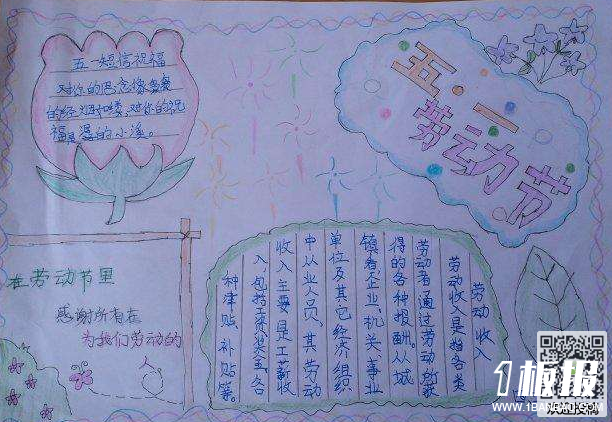 五·一
劳动节
五一短信祝福
对你的思念像袅袅
的轻烟不喽,对你的祝
福是潺的小溪。
在劳动节里
感谢所有在
为我们劳动的
人
劳动收入
劳动收入是指各类
劳动者通过劳动所获
得的各种报酬。从城
镇看,企业、机关、事业
单位及其它经济组织
中从业人员,其劳动
收入主要是工薪收
入,包括工资、奖金、各
种津贴、补贴等。
1板报
WWW.1BANBAO.COM
欢迎投稿